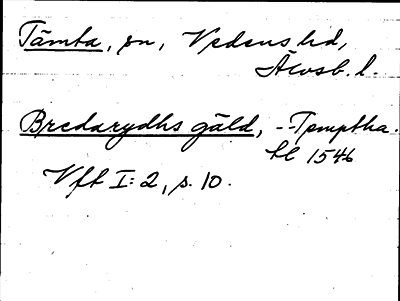 Tämta, sn, Vedens hd,
Älvsb. l.
Bredarydhs gäld, --Temptha.
hl 1546
Vft I: 2, s. 10.